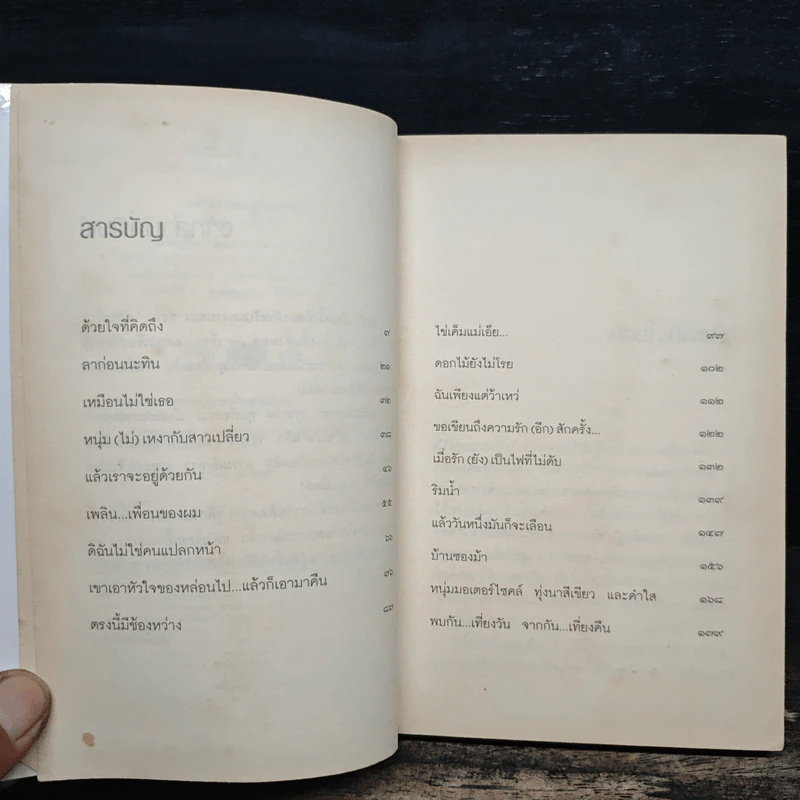 สารบัญ
ด้วยใจที่คิดถึง ๗
ลาก่อนนะทิน ๒๑
เหมือนไม่ใช่เธอ ๓๒
หนุ่ม (ไม่) เหงากับสาวเปลี่ยว ๓๘
แล้วเราจะอยู่ด้วยกัน ๔๖
เพลิน...เพื่อนของผม ๕๕
ดิฉันไม่ใช่คนแปลกหน้า ๖๖
เขาเอาหัวใจของหล่อนไป...แล้วก็เอามาคืน ๗๖
ตรงนี้มีช้องหว่าง ๘๗
ไข่เค็มแม่เอ๊ย... ๙๗
ดอกไม้ยังไม่โรย ๑๐๒
ฉันเพียงแต่ว้าเหว่ ๑๑๒
ขอเขียนถึงความรัก (อีก) สักครั้ง... ๑๒๒
เมื่อรัก (ยัง) เป็นไฟที่ไม่ดับ ๑๓๒
ริมน้ำ ๑๓๙
แล้ววันหนึ่งมันก็จะเลือน ๑๔๗
บ้านซองม้า ๑๕๖
หนุ่มมอเตอร์ไซคล์ ทุ่งนาสีเขียว และคำไส ๑๖๘
พบกัน...เที่ยงวัน จากกัน...เที่ยงคืน ๑๗๙